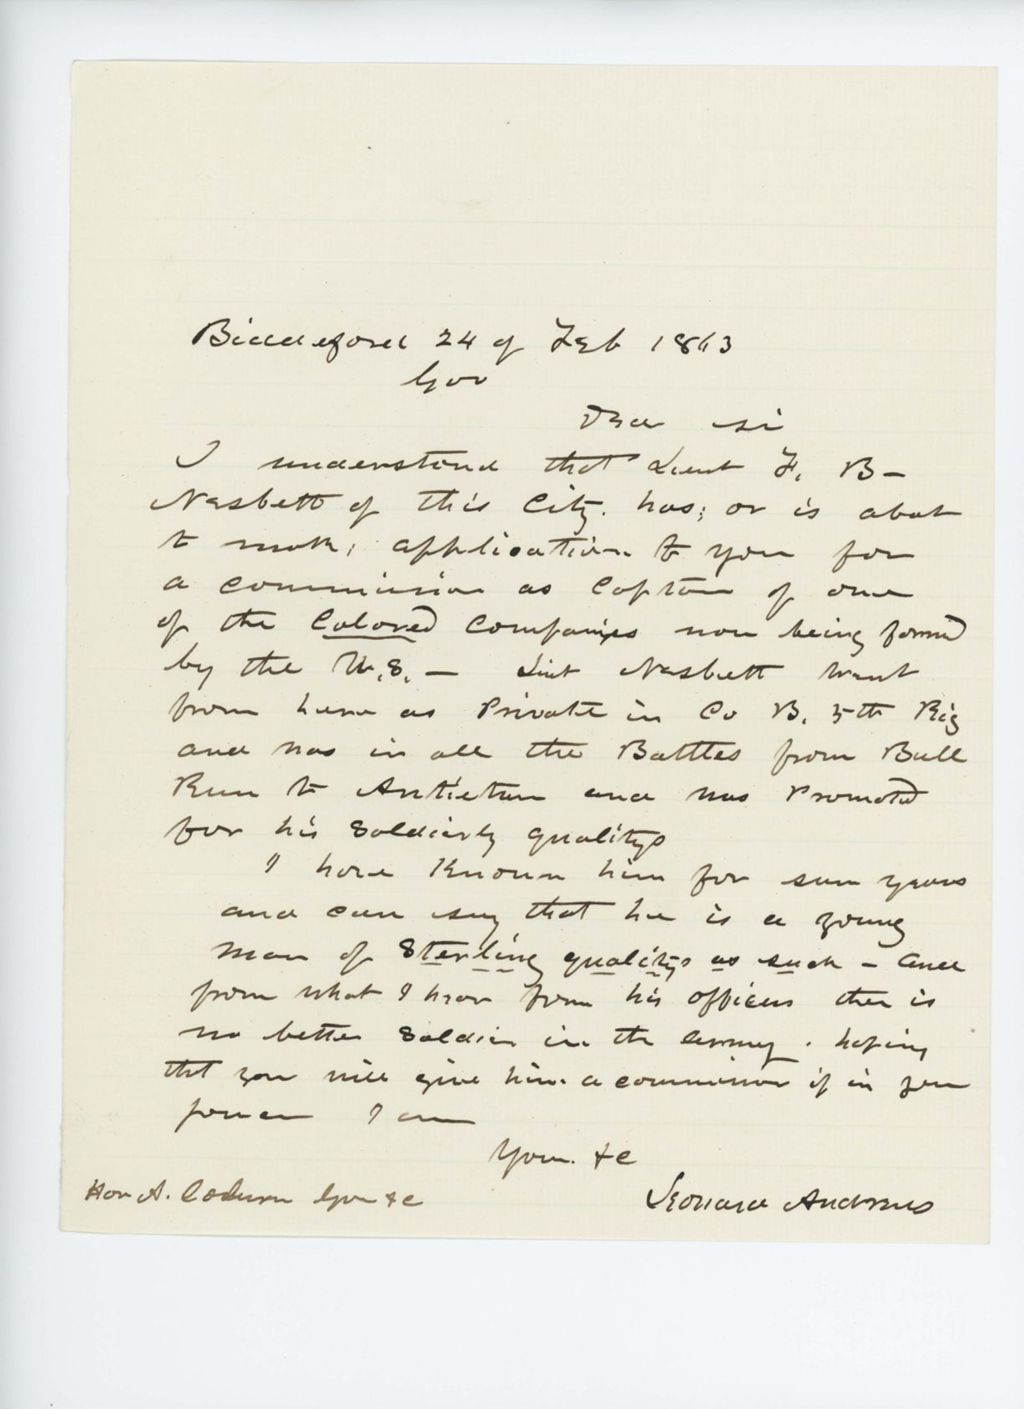 Biddeford 24 of Feb 1863
Gov
Dear sir
I understand that Lieut F. B-
Nesbett of this City. has; or is about
to make, application to you for
a commission as Captain of one
of the Colored Companys now being formed
by the U.S. - Liut Nesbett went
from here as Private in Co B. 5th Reg
and was in all the Battles from Bull
Run to Antietam and was Promoted
for his Soldierly qualitys
I have Known him for years
and can say that he is a young
man of Sterling qualitys as such - and
from what I hear from his officers ther is
no better Soldier in the Army. hoping
that you will give him a commission if in your
power I am
Your. &c
Hon A. Coburn Gov &c
Leonard Andrews